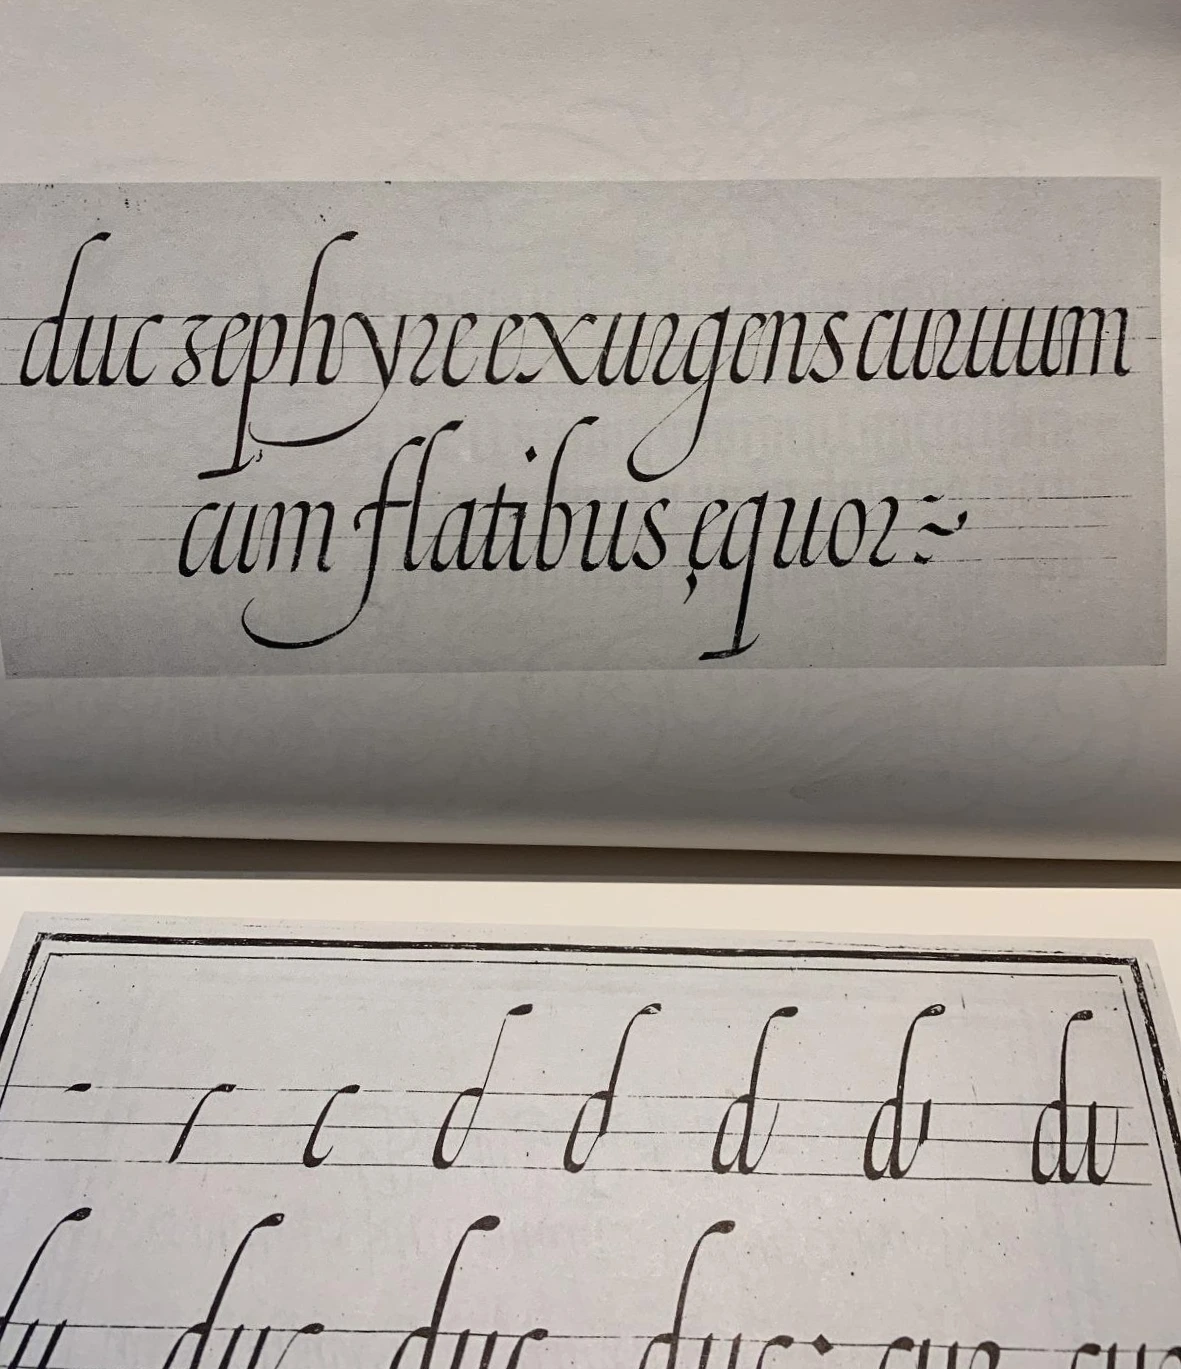 duc zephyre exurgens curuum
cum flatibus ęquor
r c d d d d du
du duc duc duc